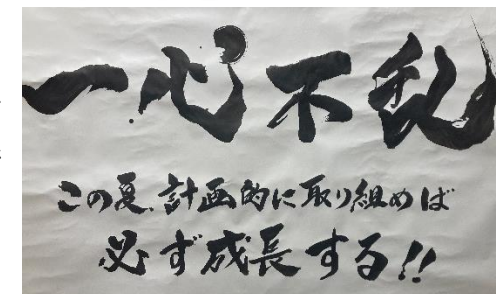 一心不乱
この夏、計画的に取り組めば
必ず成長する!!